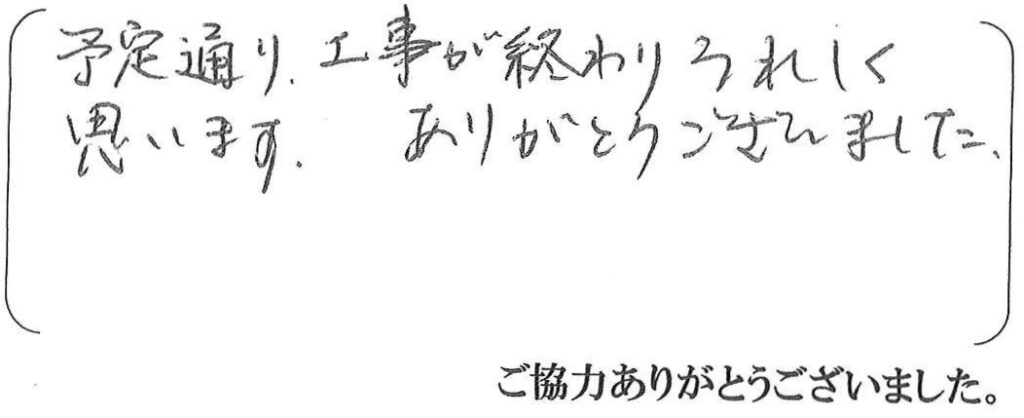 予定通り、工事が終わりうれしく
思います. ありがとうございました、
ご協力ありがとうございました。